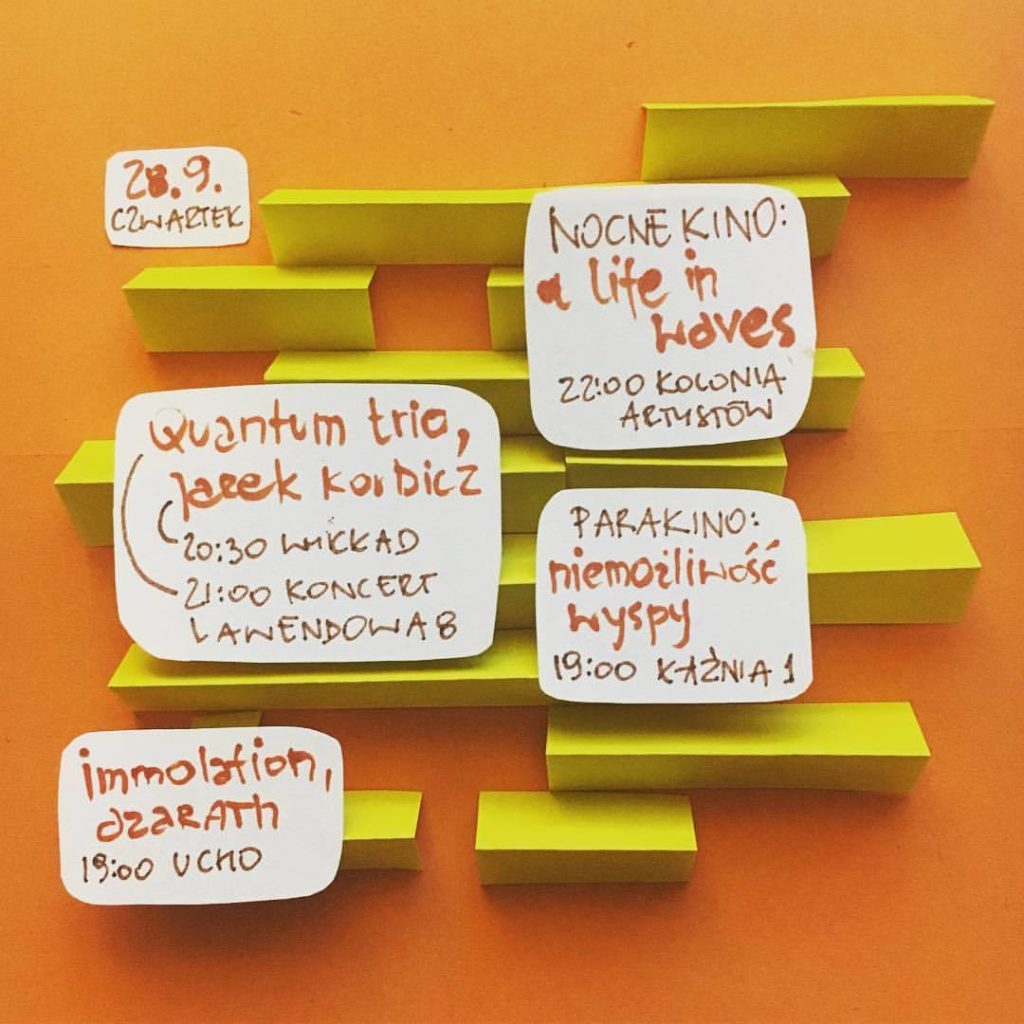 28.9.
CZWARTEK
NOCNE KINO:
a life in
waves
22:00 KOLONIA
ARTYSTÓW
Quantum trio,
jacek korbicz
20:30 WYKŁAD
21:00 KONCERT
LAWENDOWA 8
PARAKINO:
niemożliwość
wyspy
19:00 ŁAŹNIA 1
immolation,
azaRATh
19:00 UCHO